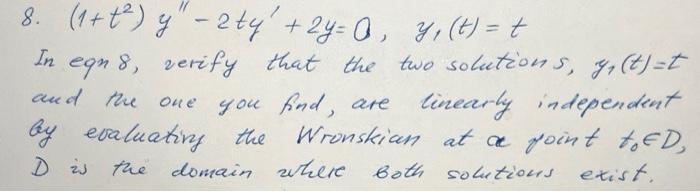 8. (1+t²) y'' - 2ty' + 2y = 0, y₁(t) = t
In eqn 8, verify that the two solutions, y₁(t)=t
and the one you find, are linearly independent
by evaluating the Wronskian at a point t₀∈D,
D is the domain where both solutions exist.